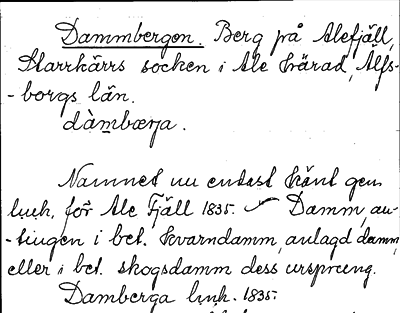 Dammbergen. Berg på Alefjäll,
Starrkärrs socken i Ale härad, Älfs-
-borgs län.
dàmbærja.
Namnet nu endast känt gen.
lmk. för Ale Fjäll 1835. Damm, an-
-tingen i bet. kvarndamm, anlagd damm,
eller i bet. skogsdamm dess ursprung.
Damberga lmk. 1835.